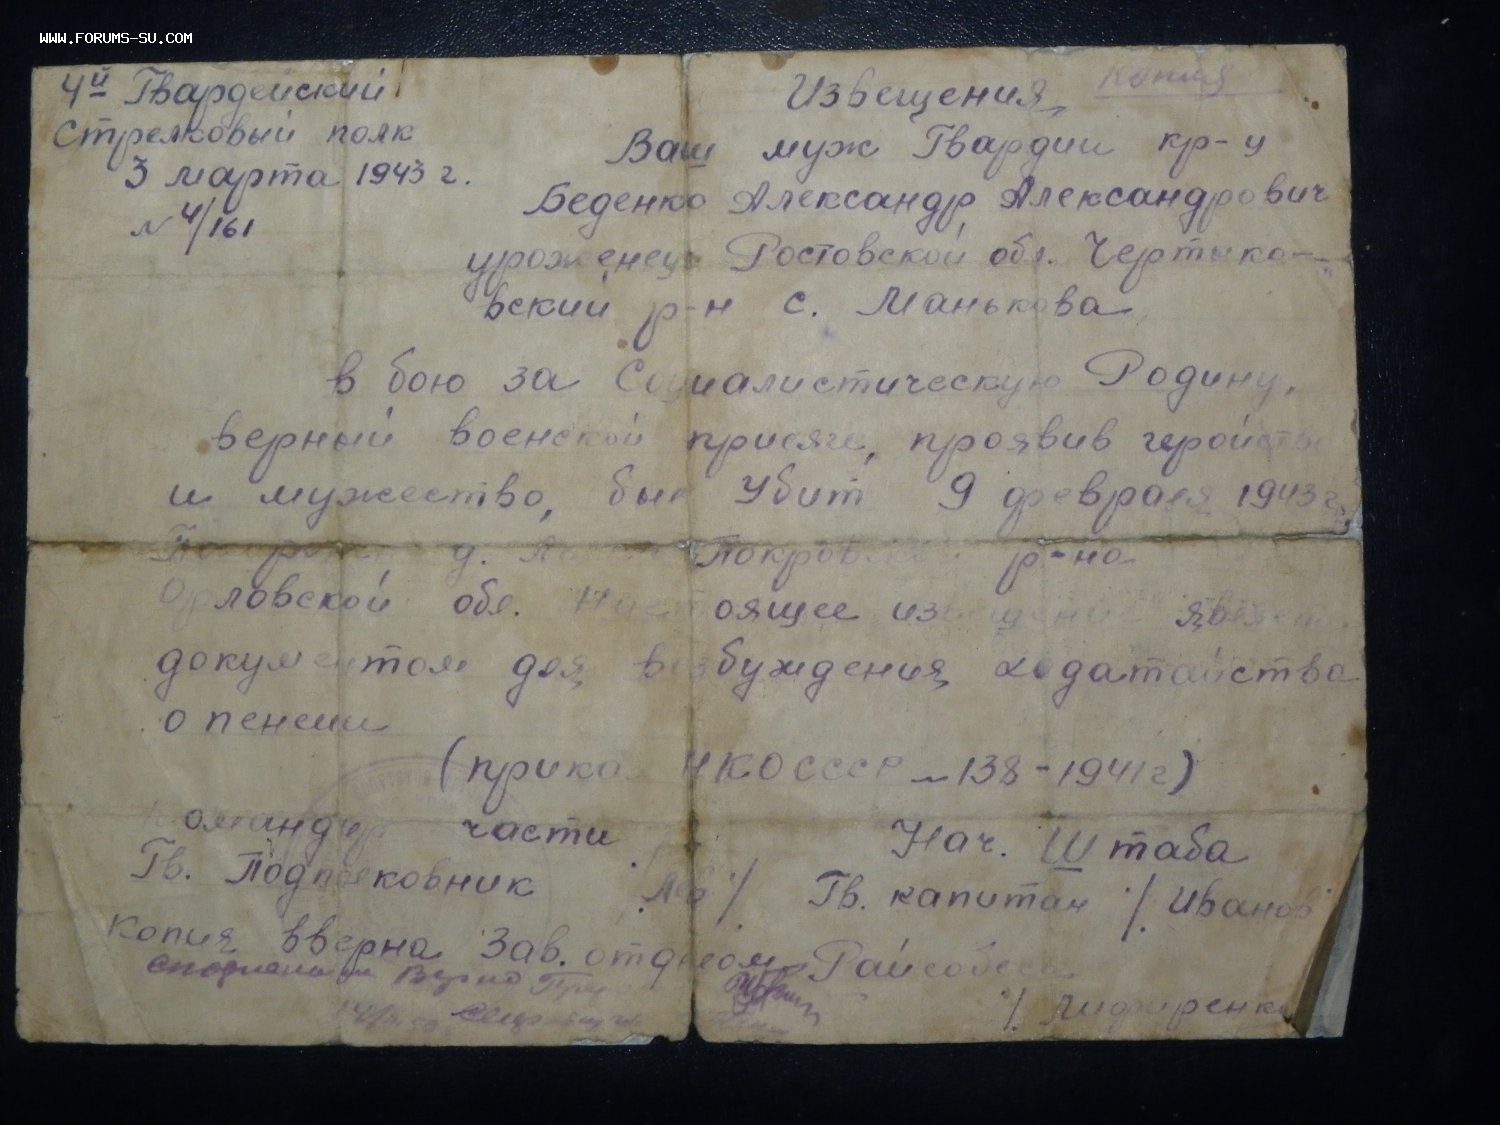 WWW.FORUMS-SU.COM
4й Гвардейский
Стрелковый полк
3 марта 1943 г.
N 4/161
Копия
Извещения
Ваш муж Гвардии кр-ц
Беденко Александр Александрович
уроженец Ростовской обл. Чертыко-
вский р-н с. Манькова
в бою за Социалистическую Родину,
верный военской присяге, проявив геройство
и мужество, был Убит 9 февраля 1943 г.
д. Покровского р-на
Орловской обл. Настоящее извещение является
документом для возбуждения ходатайства
о пенсии
(приказ НКО СССР N 138-1941 г)
Командир части
Гв. Подполковник /Лев/
Нач. Штаба
Гв. капитан /Иванов
Копия вверна Зав. отделом Райсобеса